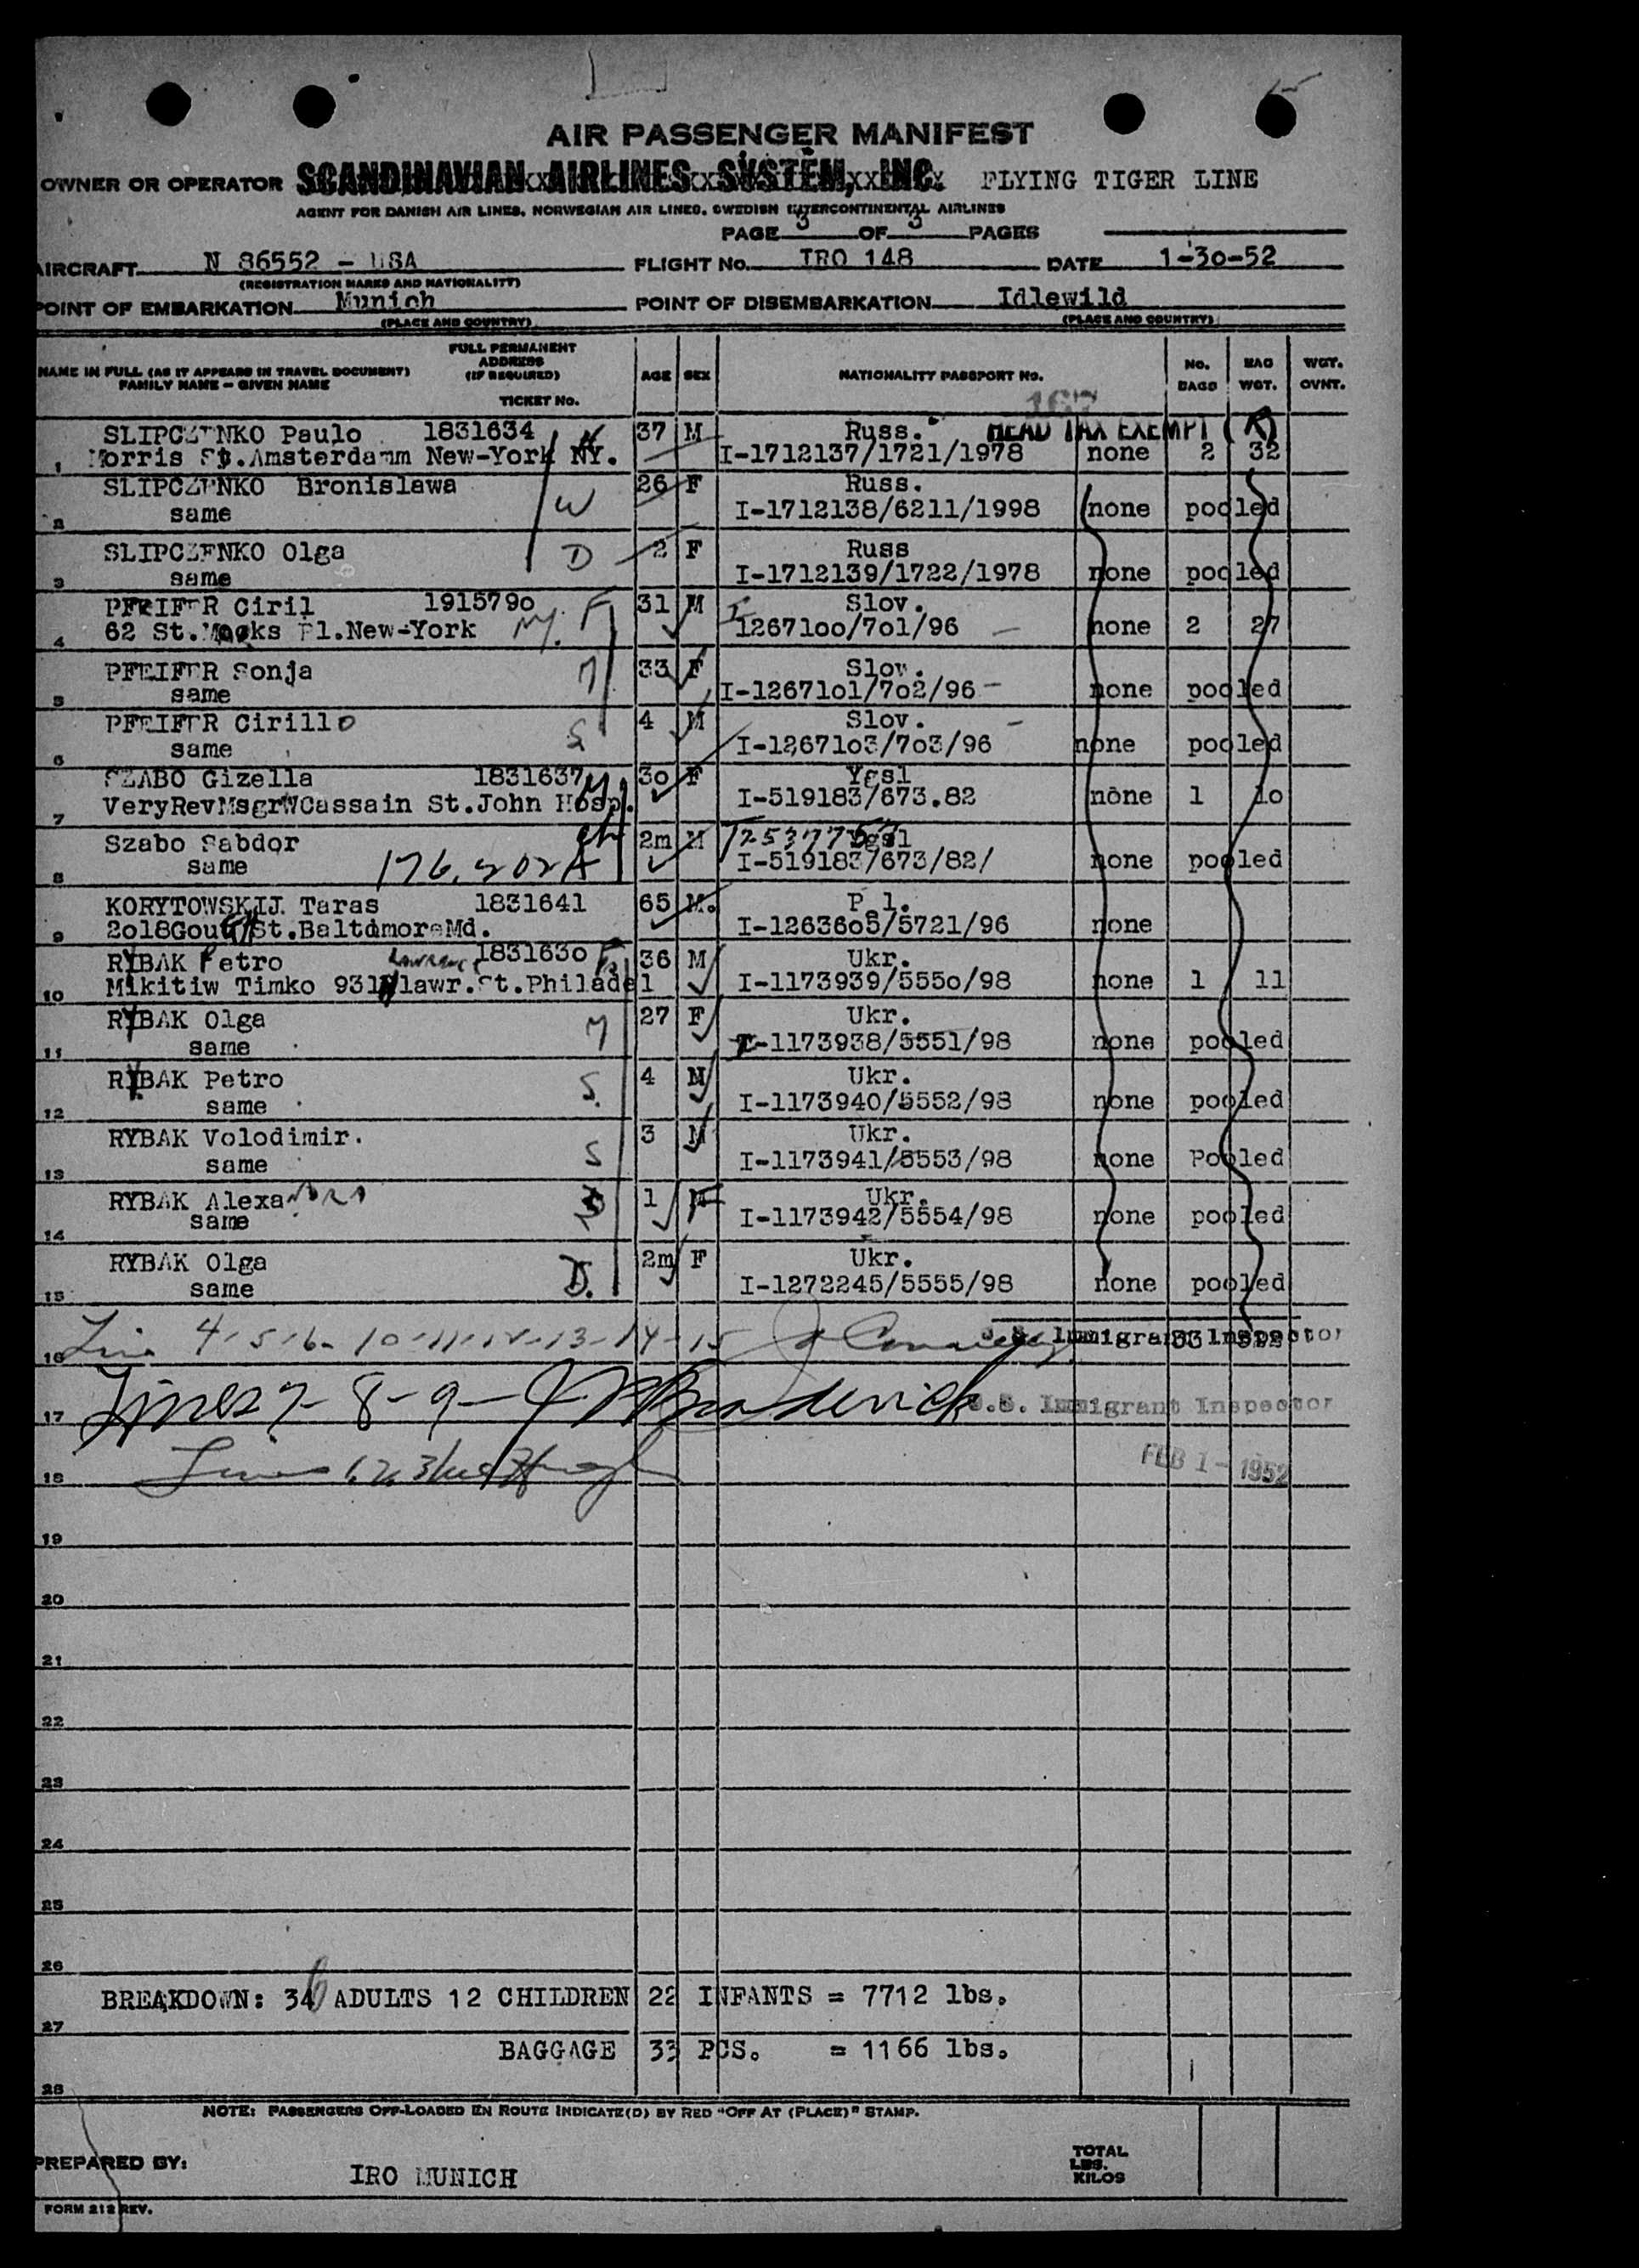 AIR PASSENGER MANIFEST
OWNER OR OPERATOR SCANDINAVIAN AIRLINES SYSTEM, INC. FLYING TIGER LINE
AGENT FOR DANISH AIR LINES, NORWEGIAN AIR LINES, SWEDISH INTERCONTINENTAL AIRLINES
PAGE 3 OF 3 PAGES
AIRCRAFT N 86552 - USA FLIGHT No. IRO 148 DATE 1-30-52
(REGISTRATION MARKS AND NATIONALITY)
POINT OF EMBARKATION Munich POINT OF DISEMBARKATION Idlewild
(PLACE AND COUNTRY) (PLACE AND COUNTRY)
NAME IN FULL (AS IT APPEARS IN TRAVEL DOCUMENT) FAMILY NAME - GIVEN NAME FULL PERMANENT ADDRESS (IF REQUIRED) TICKET No. AGE SEX NATIONALITY PASSPORT No. No. BAGS BAG WGT. WGT. OVNT.
167
SLIPCZENKO Paulo 1831634 H 37 M Russ. HEAD TAX EXEMPT (R)
1 Morris St.Amsterdamm New-York NY. I-1712137/1721/1978 none 2 32
SLIPCZENKO Bronislawa W 26 F Russ.
2 same I-1712138/6211/1998 none pooled
SLIPCZENKO Olga D 2 F Russ
3 same I-1712139/1722/1978 none pooled
PFEIFER Ciril 1915790 F 31 M Slov.
4 62 St.Marks Pl.New-York NY. I 1267100/701/96 none 2 27
PFEIFER Sonja M 33 F Slov.
5 same I-1267101/702/96 none pooled
PFEIFER Cirillo S 4 M Slov.
6 same I-1267103/703/96 none pooled
SZABO Gizella 1831637 M 30 F Ygsl
7 VeryRevMsgrWCassain St.John Hosp. I-519183/673.82 none 1 10
Szabo Sabdor ch 2m M Ygsl
8 same 176,202A I-519183/673/82/ none pooled
KORYTOWSKIJ Taras 1831641 65 M. Pol.
9 2018Gough St.BaltimoreMd. I-1263605/5721/96 none
RYBAK Petro Lawrence 1831630 F. 36 M Ukr.
10 Mikitiw Timko 931N lawr.St.Philadel I-1173939/5550/98 none 1 11
RYBAK Olga M 27 F Ukr.
11 same I-1173938/5551/98 none pooled
RYBAK Petro S. 4 M Ukr.
12 same I-1173940/5552/98 none pooled
RYBAK Volodimir. S 3 M Ukr.
13 same I-1173941/5553/98 none Pooled
RYBAK Alexandra 1 F Ukr.
14 same I-1173942/5554/98 none pooled
RYBAK Olga D. 2m F Ukr.
15 same I-1272245/5555/98 none pooled
16 Line 4-5-6-10-11-12-13-14-15 U.S. Immigrant Inspector 33
17 Lines 7-8-9- Broderick U.S. Immigrant Inspector
FEB 1 - 1952
18 Lines 1.2.3
19
20
21
22
23
24
25
26
BREAKDOWN: 346 ADULTS 12 CHILDREN 22 INFANTS = 7712 lbs.
27
BAGGAGE 33 PCS. = 1166 lbs.
28
NOTE: PASSENGERS OFF-LOADED EN ROUTE INDICATE(D) BY RED "OFF AT (PLACE)" STAMP.
PREPARED BY: IRO MUNICH TOTAL LBS. KILOS
FORM 212 REV.